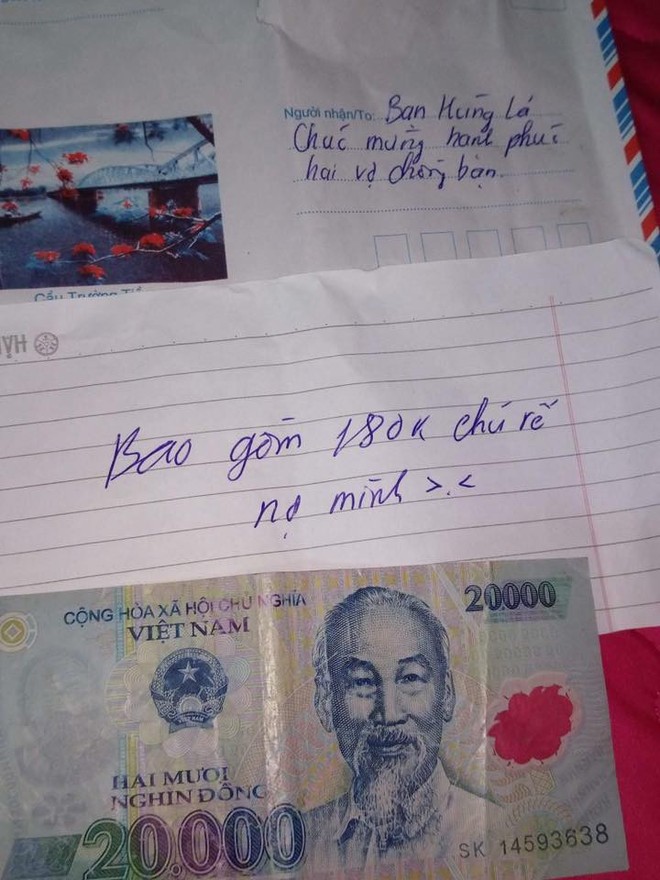 Người nhận/To: Bạn Hưng Lá
Chúc mừng hạnh phúc
hai vợ chồng bạn.
Cầu Trường Tiền
Bao gồm 180K chú rể
nợ mình >.<
CỘNG HÒA XÃ HỘI CHỦ NGHĨA
VIỆT NAM
20000
HAI MƯƠI
NGHÌN ĐỒNG
20.000
SK 14593638